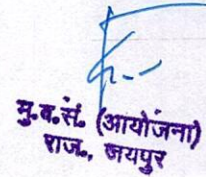 मु.व.सं. (आयोजना)
राज., जयपुर